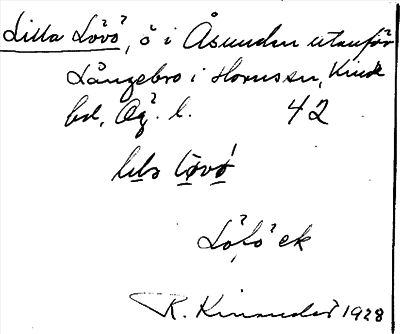 Lilla Lövö, ö i Åsunden utanför
Långebro i Hornssn, Kinds
hd, Ög. l. 42
lila lövö
Löfö ek
R. Kinander 1928